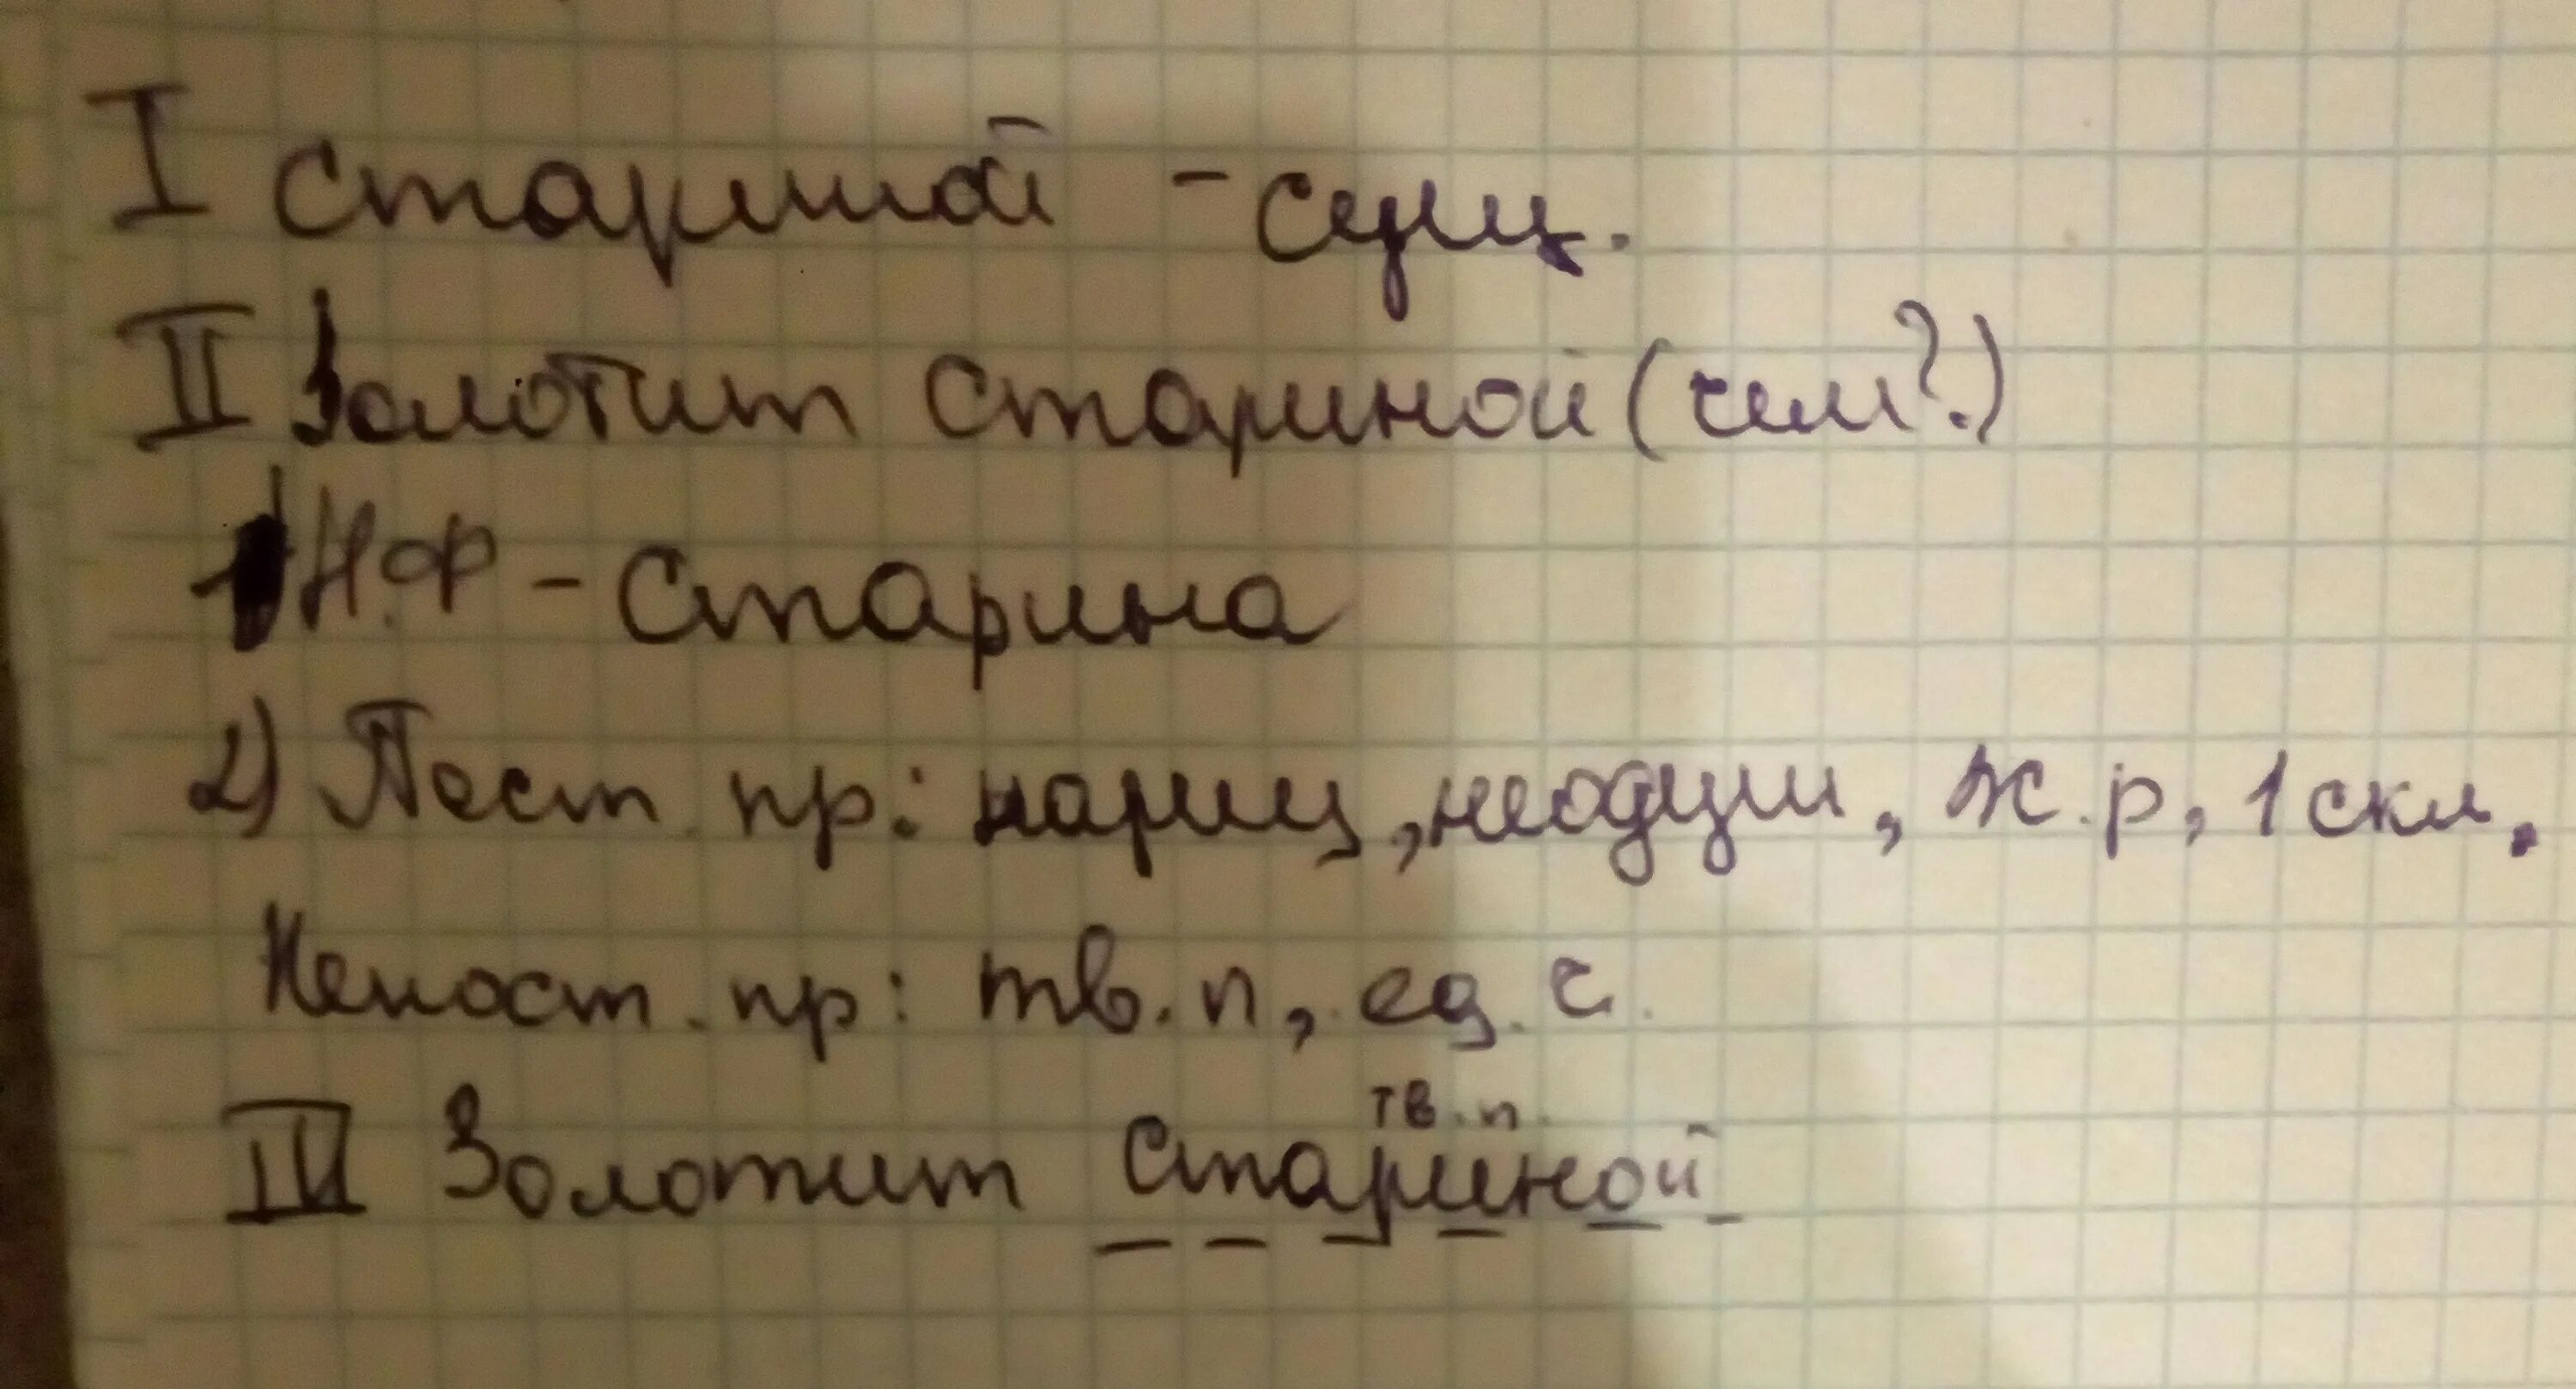 I стариной - сущ.
II Золотит стариной (чем?.)
1) Н.Ф - Старина
2) Пост. пр: нариц, неодуш, ж.р, 1 скл.
Непост. пр: тв. п, ед. ч.
тв. п.
III Золотит стариной